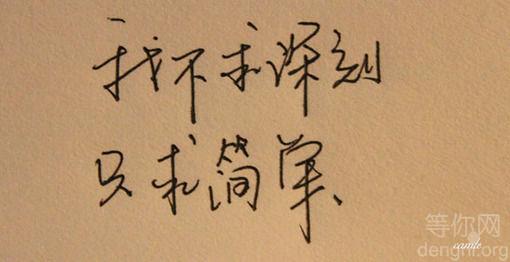 我不求深刻
只求简单、
等你网
camile
dengni.org